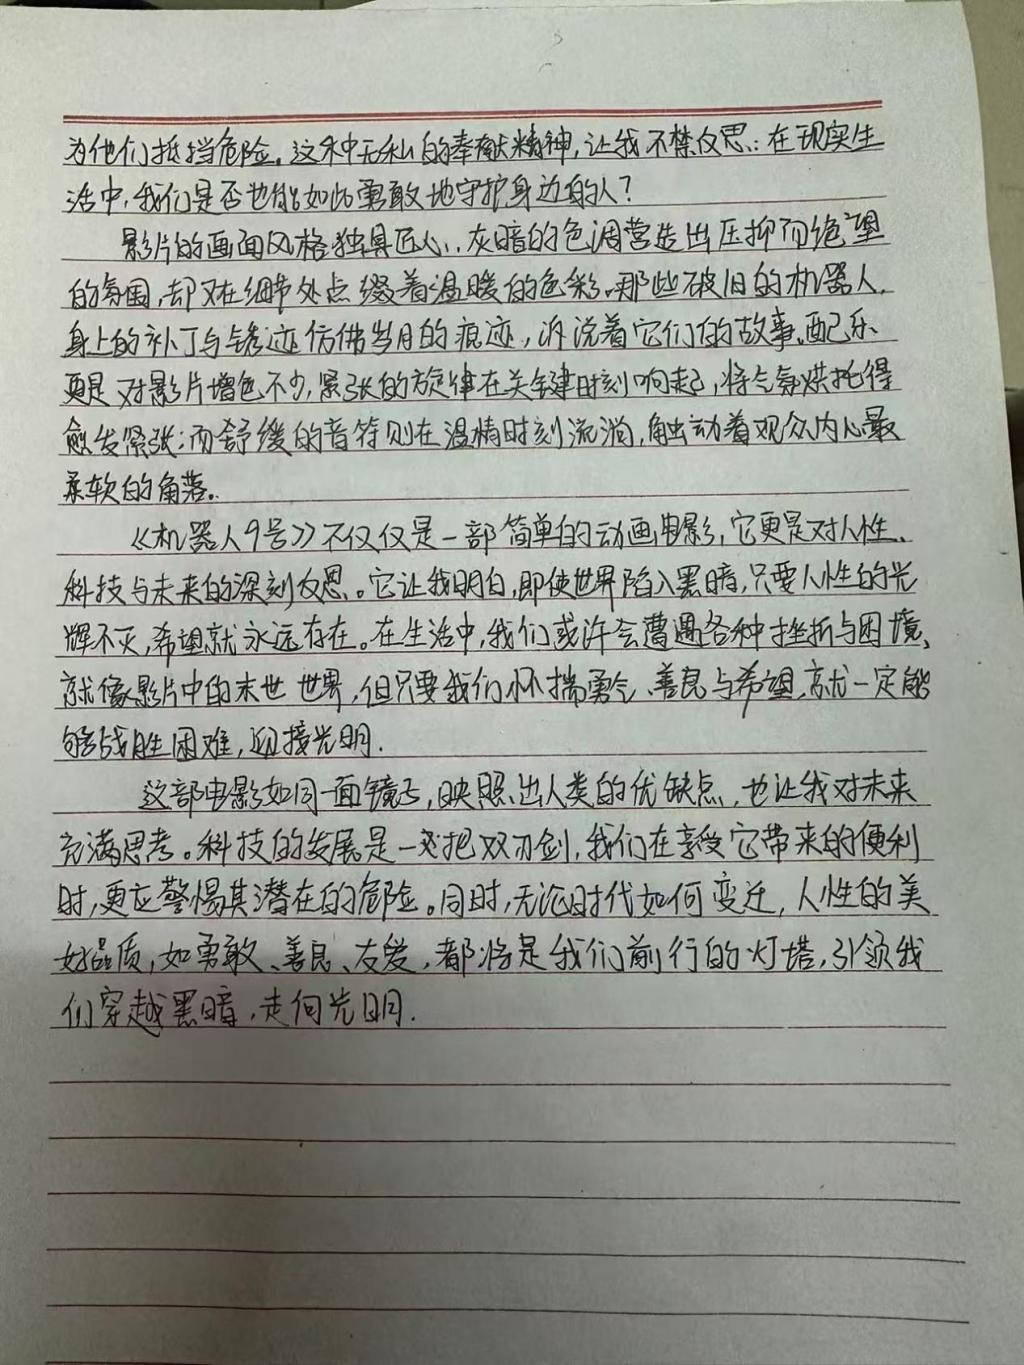 为他们抵挡危险。这种无私的奉献精神,让我不禁反思:在现实生
活中,我们是否也能如此勇敢地守护身边的人?
影片的画面风格独具匠心,灰暗的色调营造出压抑而绝望
的氛围,却又在细节处点缀着温暖的色彩。那些破旧的机器人,
身上的补丁与锈迹仿佛岁月的痕迹,诉说着它们的故事。配乐
更是对影片增色不少,紧张的旋律在关键时刻响起,将气氛烘托得
愈发紧张;而舒缓的音符则在温情时刻流淌,触动着观众内心最
柔软的角落。
《机器人9号》不仅仅是一部简单的动画电影,它更是对人性、
科技与未来的深刻反思。它让我明白,即使世界陷入黑暗,只要人性的光
辉不灭,希望就永远存在。在生活中,我们或许会遭遇各种挫折与困境,
就像影片中的末世世界,但只要我们怀揣勇气、善良与希望,就一定能
够战胜困难,迎接光明.
这部电影如同一面镜子,映照出人类的优缺点,也让我对未来
充满思考。科技的发展是一把双刃剑,我们在享受它带来的便利
时,更应警惕其潜在的危险。同时,无论时代如何变迁,人性的美
好品质,如勇敢、善良、友爱,都将是我们前行的灯塔,引领我
们穿越黑暗,走向光明.